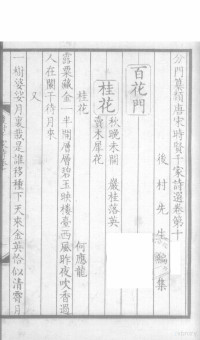 分門纂類唐宋時賢千家詩選卷第十
後村先生編集
百花門
桂花
秋晚未開
巖桂落英
賣木犀花
桂花
何應龍
露粟藏金一半開層層碧玉映樓臺西風昨夜吹香過
人在闌干待月來
又
樹婆娑月裏栽是誰移種下天來金英恰似清霄月